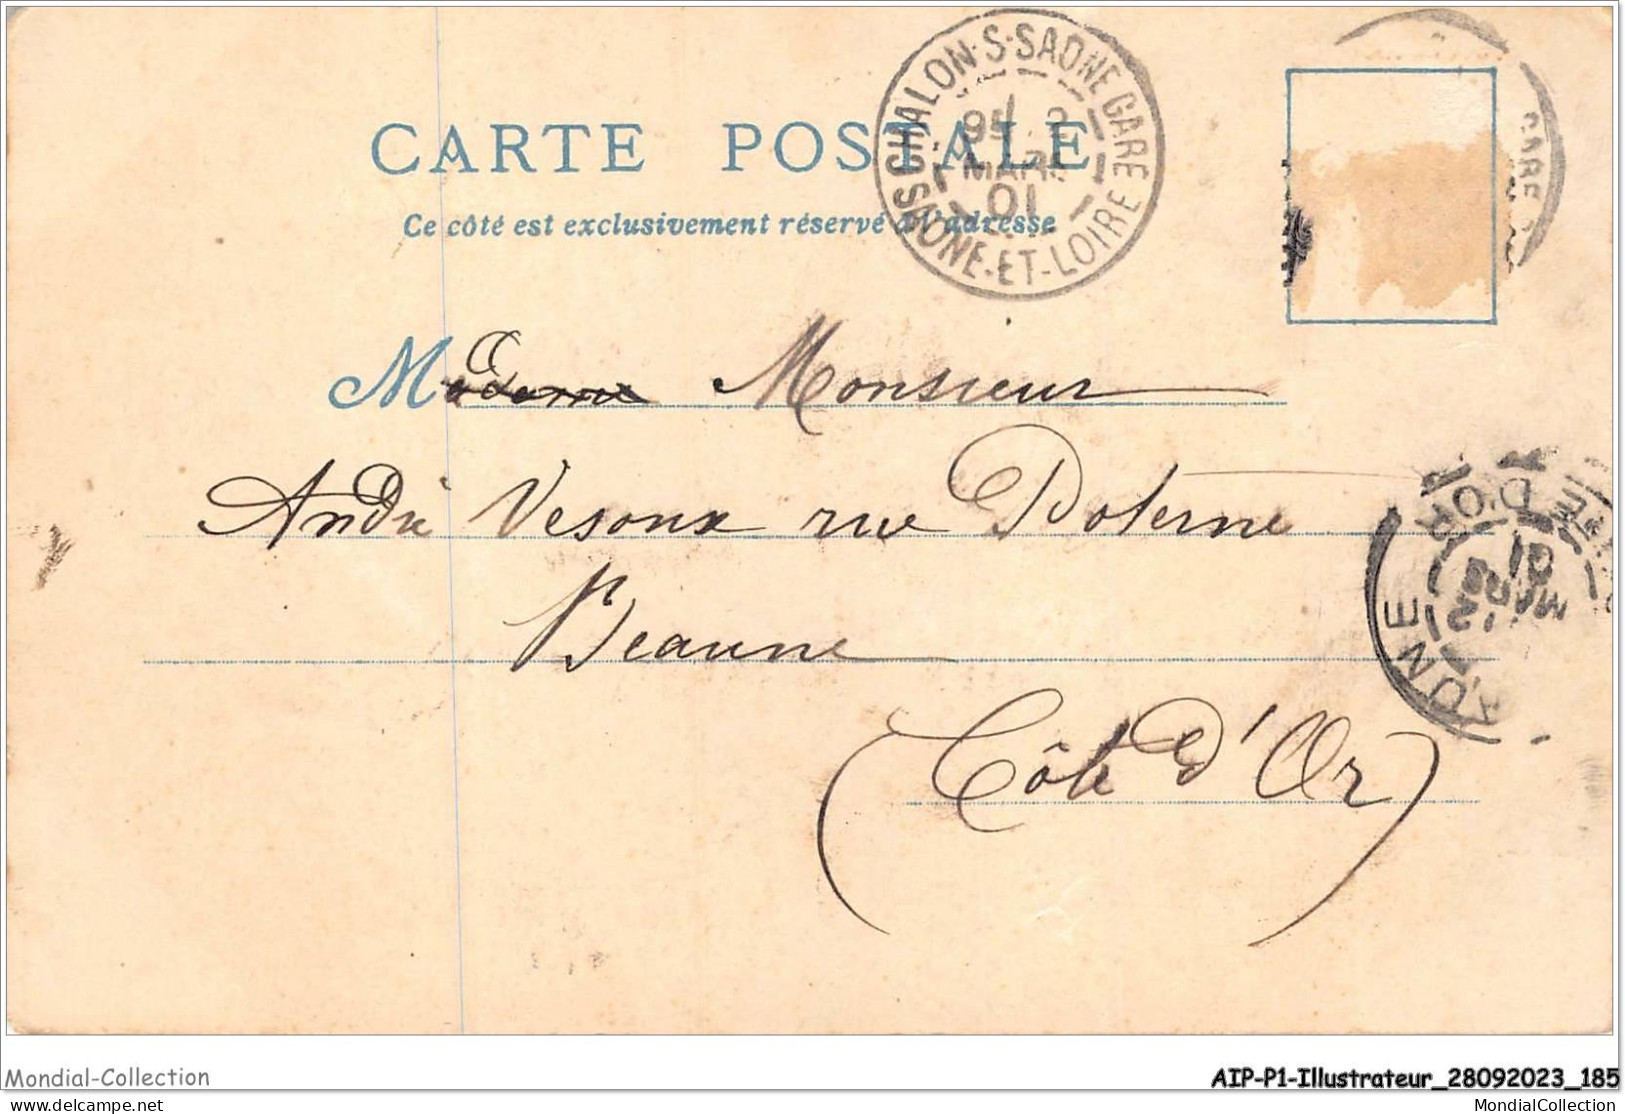 CHALON-S-SAONE GARE
MARS
01
SAONE-ET-LOIRE
GARE
CARTE POSTALE
Ce côté est exclusivement réservé à l'adresse
Madame Monsieur
André Vesoux rue Poterne
Beaune
(Côte d'Or)
CÔTE D'OR
12
MARS
01
Mondial-Collection
AIP-P1-Illustrateur_28092023_185
delcampe.net
MondialCollection